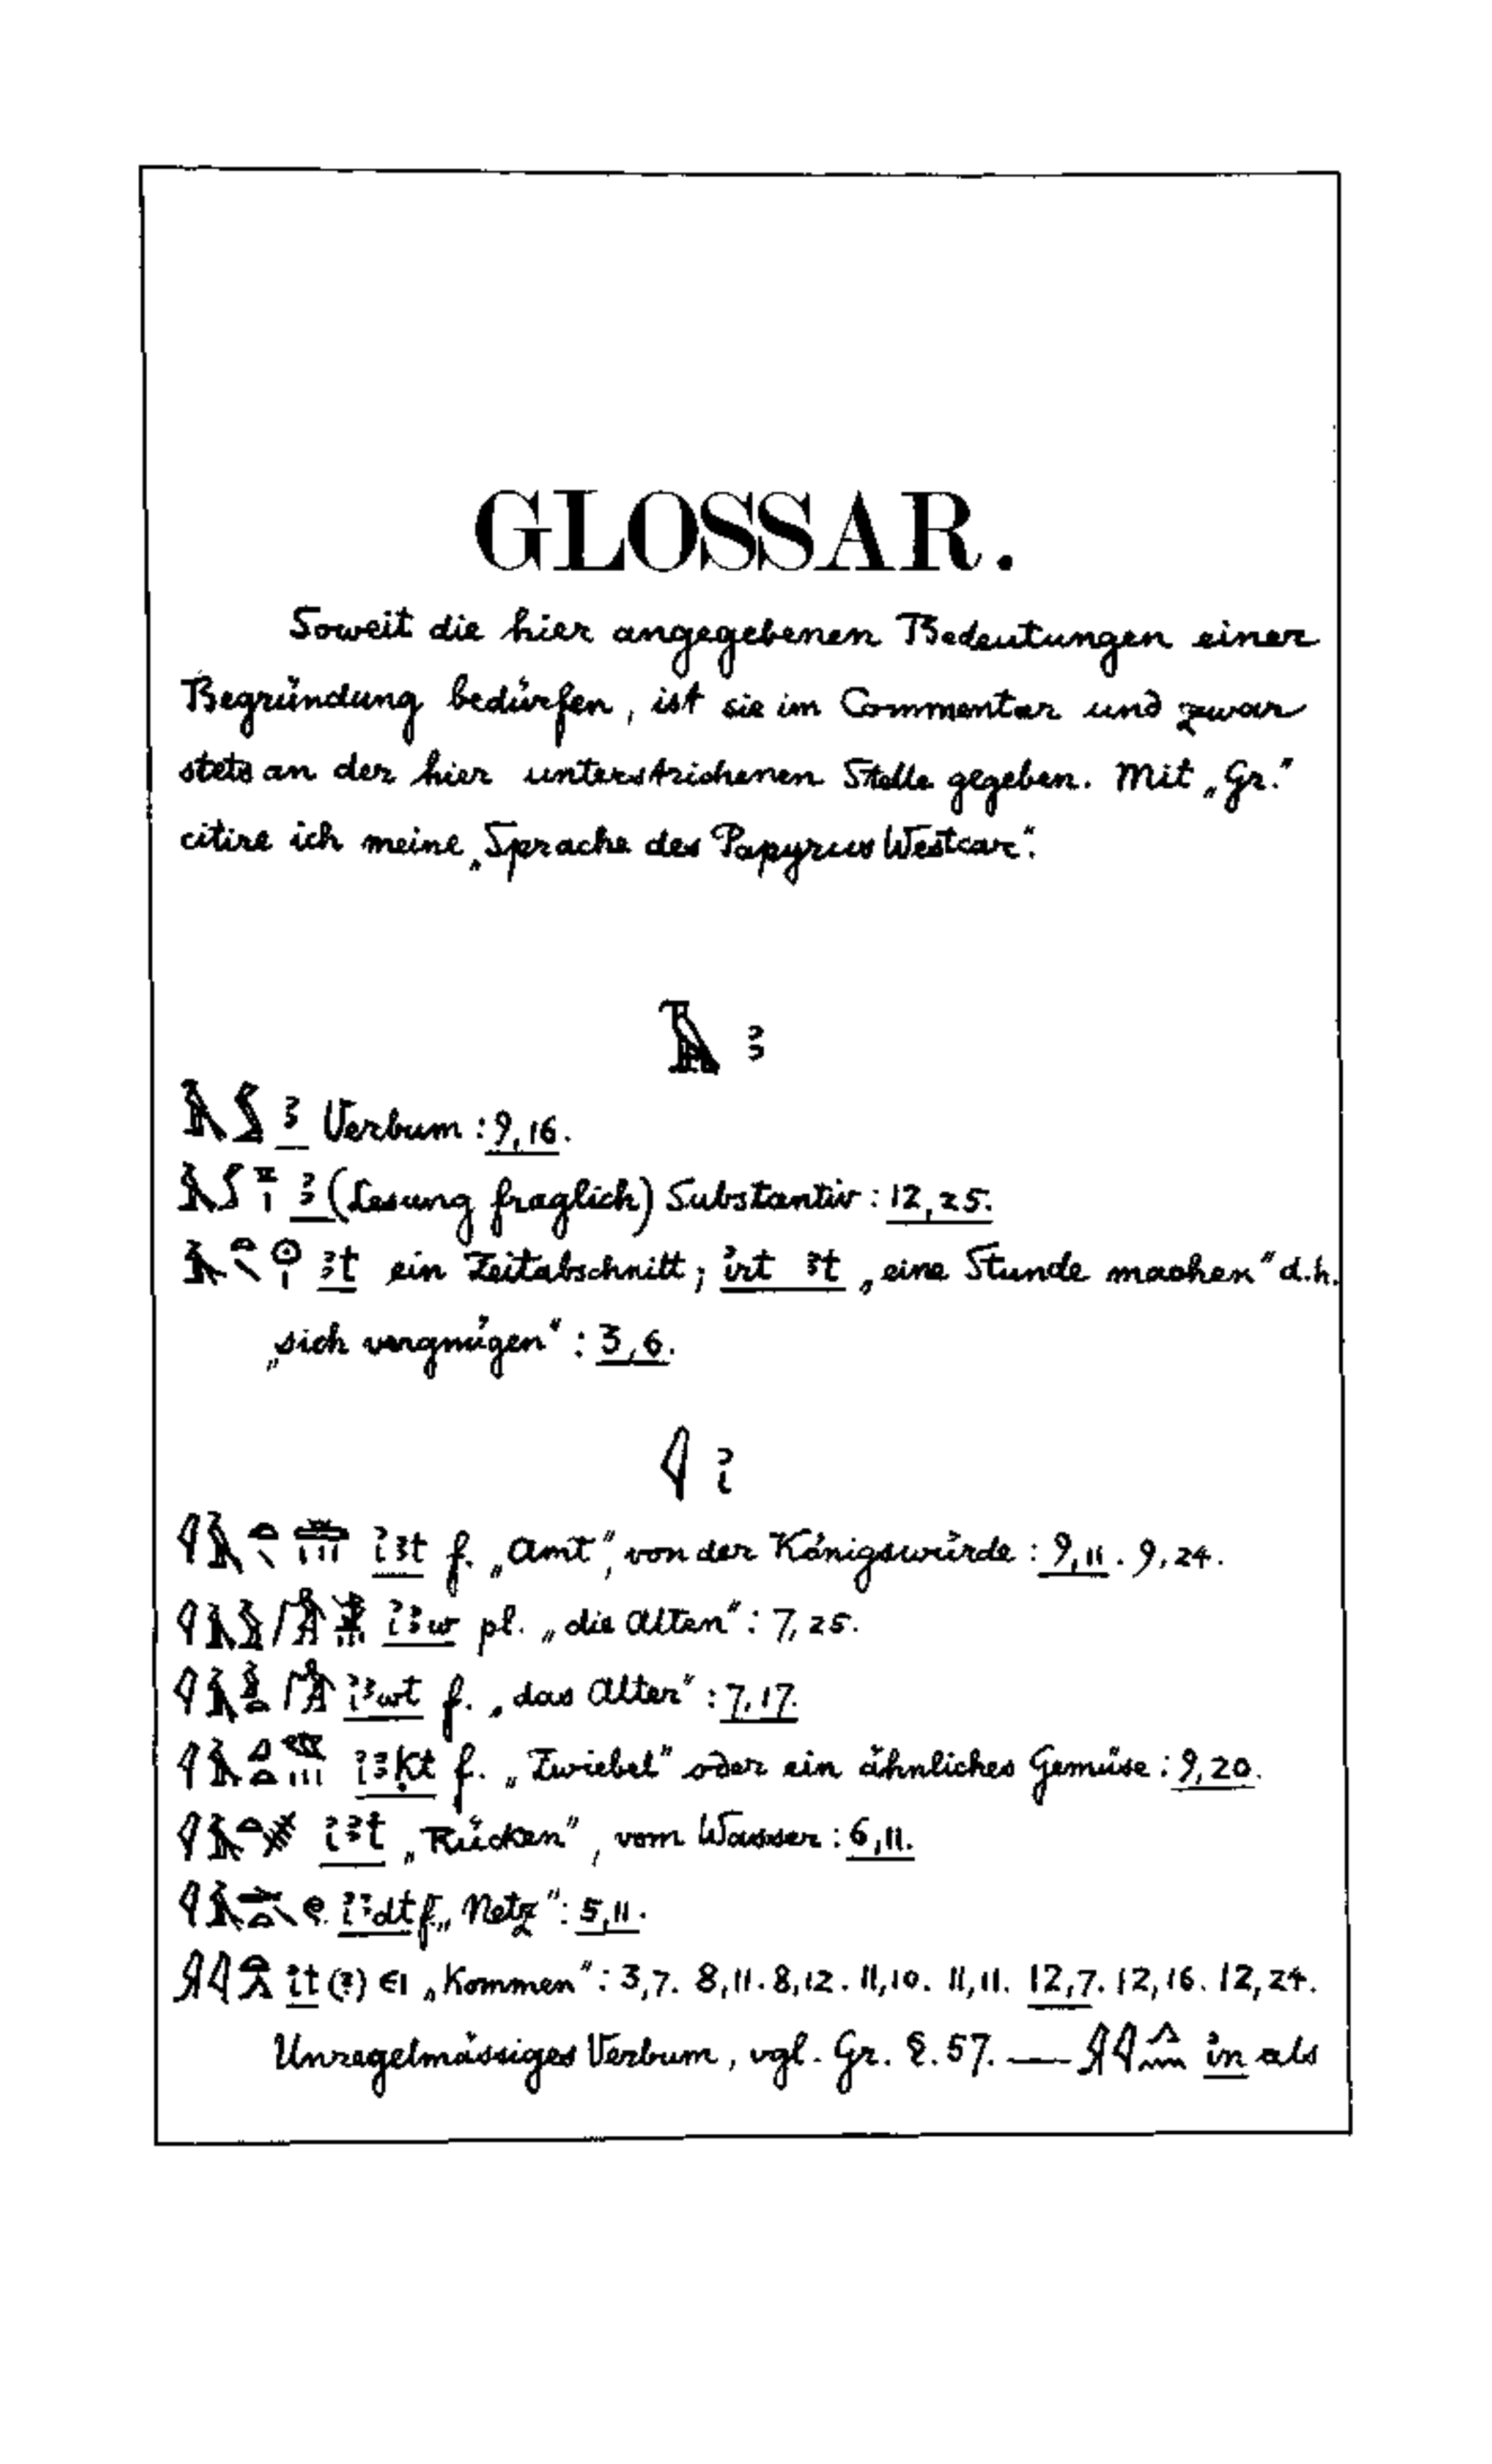 GLOSSAR.
Soweit die hier angegebenen Bedeutungen einer
Begründung bedürfen, ist sie im Commentar und zwar
stets an der hier unterstrichenen Stelle gegeben. Mit „Gr.“
citire ich meine „Sprache des Papyrus Westcar“.
𓄿 ꜣ
ꜣ Verbum : 9,16.
ꜣ (Lesung fraglich) Substantiv : 12,25.
ꜣt ein Zeitabschnitt; irt ꜣt „eine Stunde machen“ d.h.
„sich vergnügen“ : 3,6.
𓇋 ỉ
ỉꜣt f. „Amt“, von der Königswürde : 9,11. 9,24.
ỉꜣw pl. „die Alten“ : 7,25.
ỉꜣwt f. „das Alter“ : 7,17.
ỉꜣḳt f. „Zwiebel“ oder ein ähnliches Gemüse : 9,20.
ỉꜣt „Rücken“, vom Wasser : 6,11.
ỉꜣdt f. „Netz“ : 5,11.
ỉt (?) ⲉⲓ „Kommen“ : 3,7. 8,11. 8,12. 11,10. 11,11. 12,7. 12,16. 12,24.
Unregelmässiges Verbum, vgl. Gr. §. 57. — ỉn als